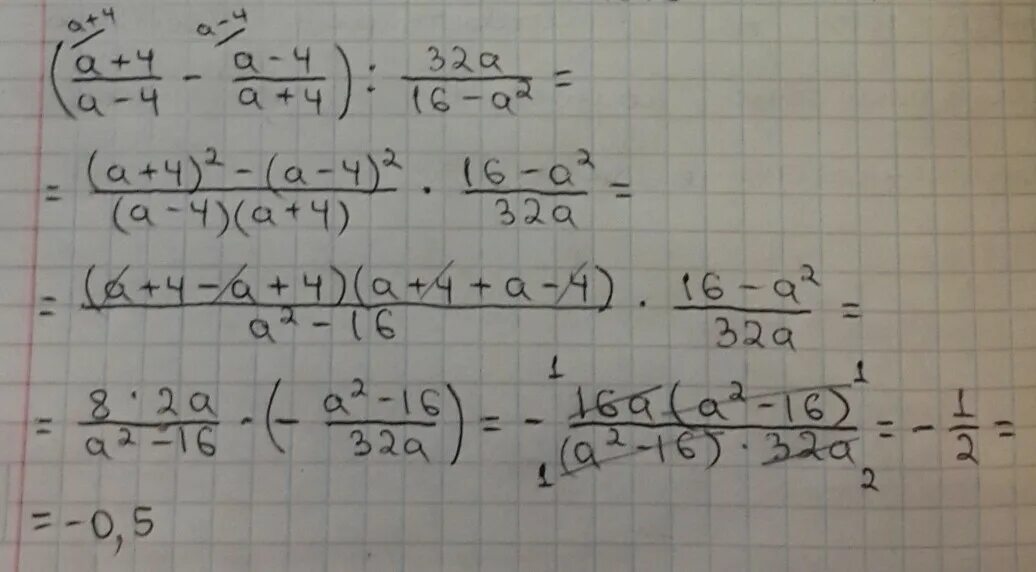 a+4 a-4
((a+4)/(a-4) - (a-4)/(a+4)) : 32a/(16-a²) =
= ((a+4)²-(a-4)²)/((a-4)(a+4)) · (16-a²)/32a =
= ((a+4-a+4)(a+4+a-4))/(a²-16) · (16-a²)/32a =
= (8·2a)/(a²-16) · (-(a²-16)/32a) = - (16a(a²-16))/((a²-16)·32a) = - 1/2 =
1 1 1 2
= -0,5